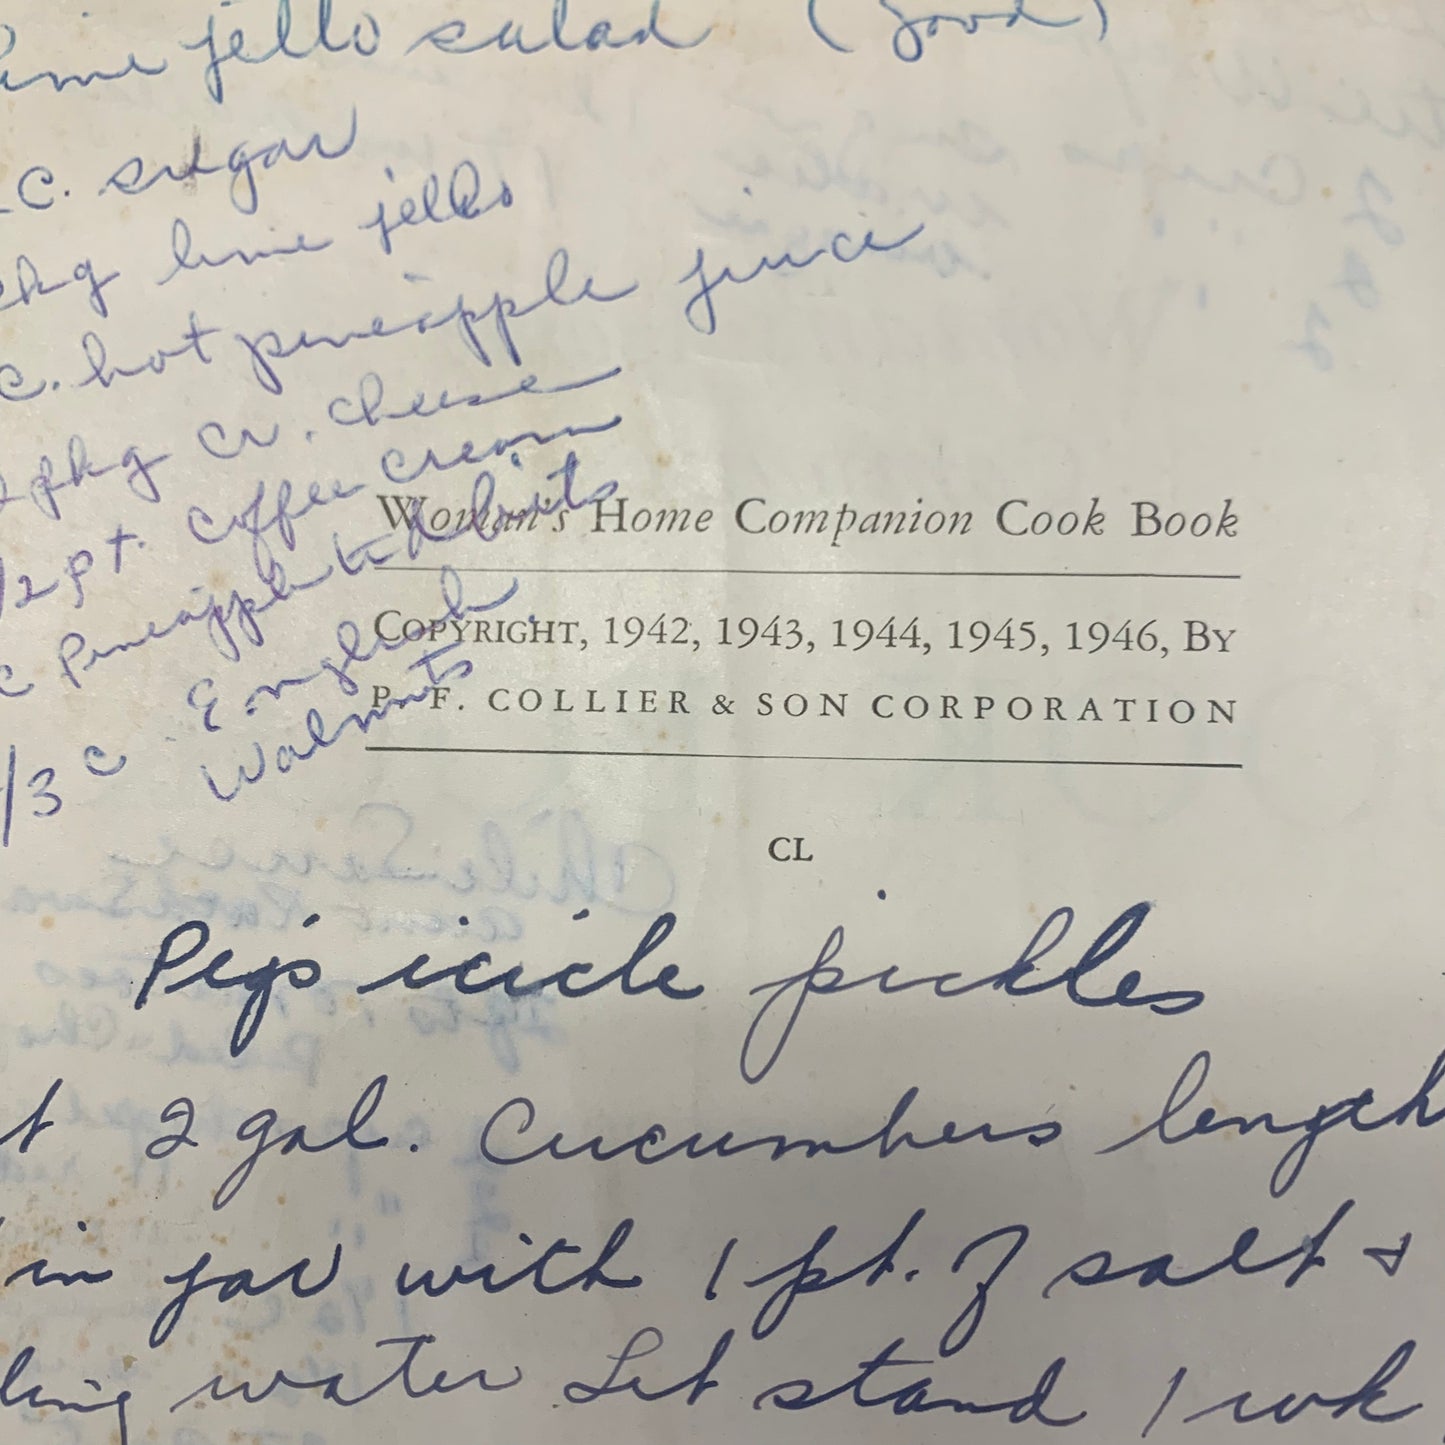 lime jello salad (good)
c. sugar
pkg lime jello
c. hot pineapple juice
2 pkg cr. cheese
1/2 pt. coffee cream
c pineapple tidbits
1/3 c English
walnuts
Woman's Home Companion Cook Book
COPYRIGHT, 1942, 1943, 1944, 1945, 1946, BY
P. F. COLLIER & SON CORPORATION
CL
Peg's icicle pickles
2 gal. Cucumbers length
in jar with 1 pt. of salt &
ling water Let stand 1 wk